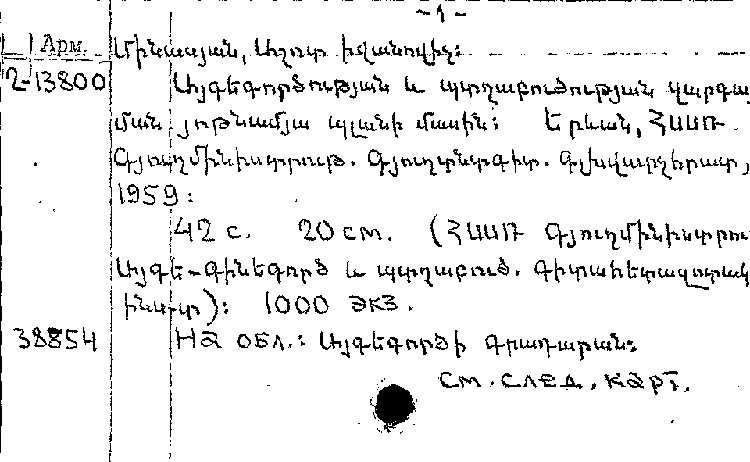 - 1 -
Арм. Մինասյան, Աշոտ Իվանովիչ:
2-13800 Այգեգործության և պտղաբուծության զարգաց
ման յոթնամյա պլանի մասին: Երևան, ՀՍՍՌ
Գյուղմինիստրութ. Գյուղտնտգիտ. գլխվարչ. հրատ,
1959:
42 с. 20 см. (ՀՍՍՌ Գյուղմինիստրու
Այգե-գինեգործ և պտղաբուծ. գիտահետազոտակ
ինստ-տ): 1000 экз.
38854 На обл.: Այգեգործի գրադարան:
См. след. карт.